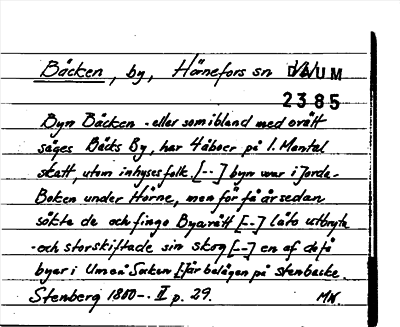 Bäcken, by, Hörnefors sn DAUM
2385
Byn Bäcken - eller som ibland med orätt
säges Bäcks By, har 4 åboer på 1. Mantal
skatt, utom inhyses folk. [--] byn war i Jorde-
Boken under Hörne, men för få år sedan
sökte de och fingo Byarätt [--] läto utbryta
och storskiftade sin skog [--] en af de få
byar i Umeå Socken [för belägen på stenbacke.
Stenberg 1800-. II p. 29. MW.